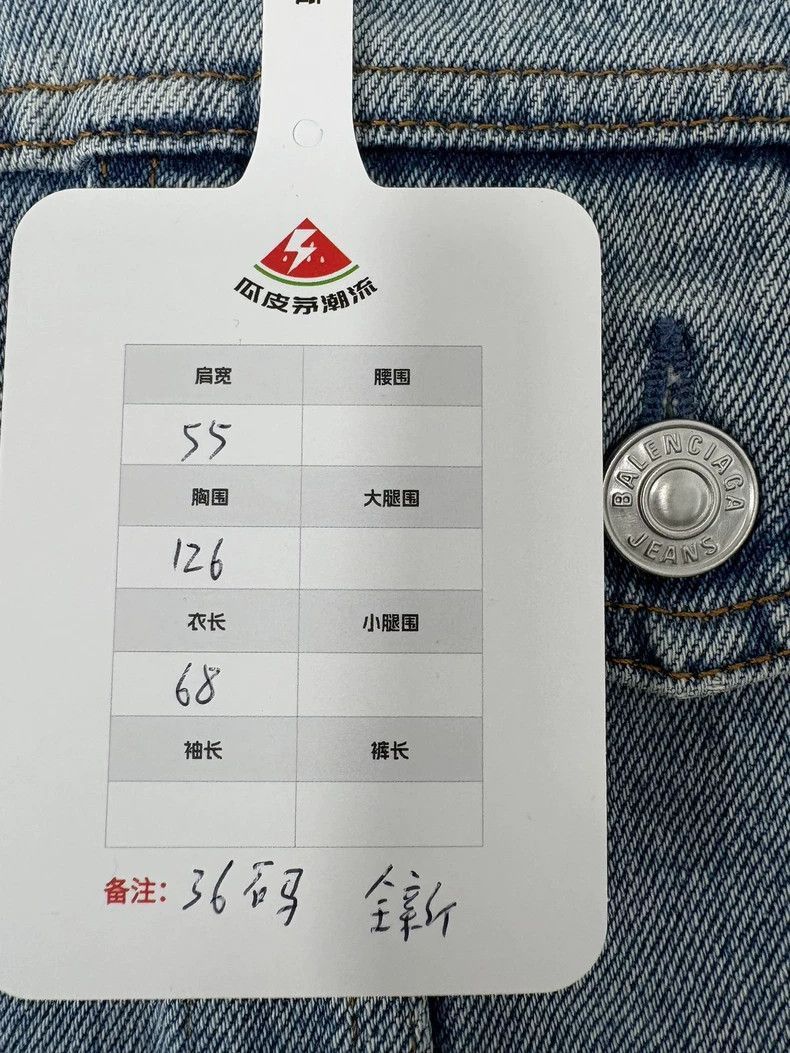 瓜皮茅潮流
肩宽 腰围
55
胸围 大腿围
126
衣长 小腿围
68
袖长 裤长
备注: 36码 全新
BALENCIAGA
JEANS